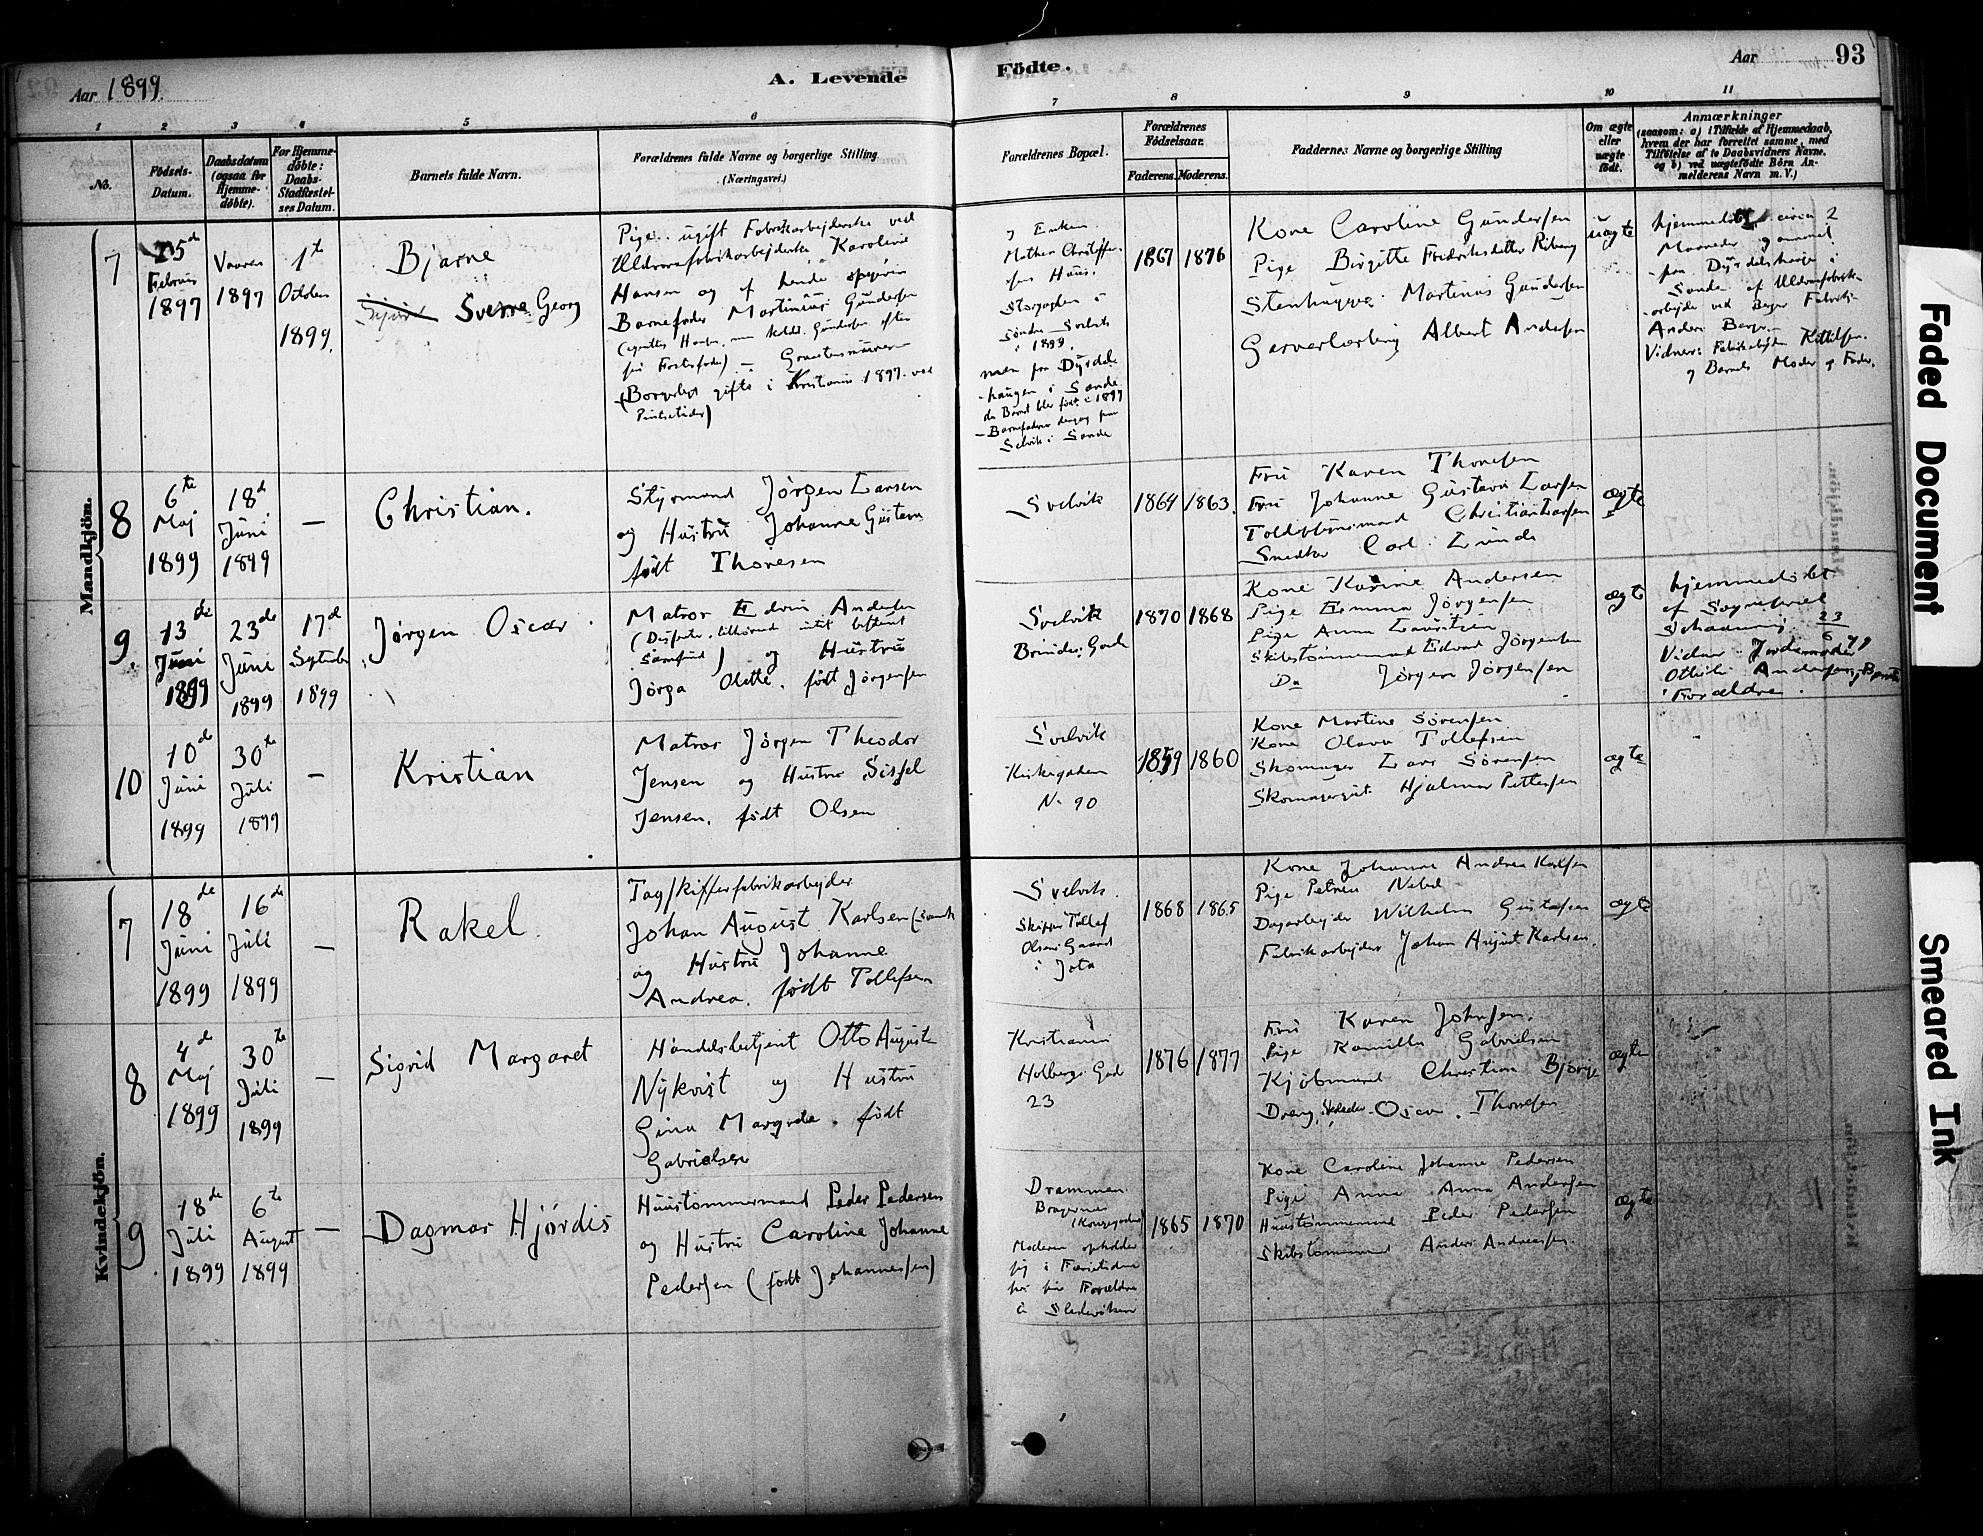 Aar 1899.
A. Levende
Födte.
Aar
93
1
2
3
4
5
6
7
8
9
10
11
No.
Födsels-
Datum.
Daabsdatum
(ogsaa for
Hjemme-
döbte).
For Hjemme-
döbte:
Daabs-
Stadfæstel-
ses Datum.
Barnets fulde Navn.
Forældrenes fulde Navne og borgerlige Stilling
(Næringsvei.)
Forældrenes Bopæl.
Forældrenes
Födselsaar.
Faderens.
Moderens.
Faddernes Navne og borgerlige Stilling
Om ægte
eller
uægte
født.
Anmærkninger
(saasom: a) i Tilfælde af Hjemmedaab,
hvem der har forrettet samme, med
Tilföielse af to Daabsvidners Navne,
og b) ved uægtefödte Börn An-
melderens Navn m. V.)
Mandkjön.
7
Februar
1897
Vaaren
1897
1te
October
1899.
Bjarne
Sverre Georg
Pige ugift Fabrikarbejderske ved
Uldvarefabrikarbejderske Karoline
Hansen og af hende opgiven
Barnefader Martinius Gundersen
(Borgerligt gifte i Kristiania 1897 ved
Pintsetider)
Enken
Mathea Christoffer-
sens Huus.
Storgaden i
Søndre Svelvik
i 1899.
men paa Dyrdals-
haugen i Sande
da Barnet blev født i 1897
Selvik i Sande
1867
1876
Kone Caroline Gundersen
Pige Birgitte Fredriksdatter
Stenhugger Martinus Gundersen
Garverlærling Albert Andersen
uægte
hjemmedøbt circa 2
Maaneder gammel
paa Dyrdalshauge i
Sande af Uldvarefabrik-
arbejder ved Berger Fabrik
Anders Berger
Vidner: Fabrikarbejder Kittilsen
og Barnets Moder og Fader.
8
6te
Maj
1899
18de
Juni
1899
—
Christian.
Styrmand Jörgen Larsen
og Hustru Johanne Gustava
født Thoresen
Svelvik
1869
1863.
Fru Karen Thoresen
Fru Johanne Gustava Larsen
Christian Larsen
Snedker Carl Lunde
ægte
9
13de
Juni
1899
23de
Juni
1899
17de
September
1899
Jørgen Oscar.
Matros Edvin Andersen
(Dissenter, tilhørende intet bestemt
Samfund) og Hustru
Jørga Olette, født Jørgensen
Svelvik
1870
1868
Kone Karine Andersen
Pige Emma Jörgensen
Pige Anna Lauritzen
Skibstømmermand Edvard Jörgensen
Do Jörgen Jörgensen
ægte
hjemmedøbt
af Sognepræst
Schanning 23/6 99
Vidner: Jordemoder
Othilie Andersen, Barnets
Forældre.
10
10de
Juni
1899
30te
Juli
1899
—
Kristian
Matros Jörgen Theodor
Jensen og Hustru Sissel
Jensen, født Olsen
Svelvik
Kirkegaden
N. 90
1859
1860
Kone Martine Sörensen
Kone Olava Tollefsen
Skomager Lars Sörensen
Skomagersvt. Hjalmar Pettersen
ægte
Kvindekjön.
7
18de
Juni
1899
16de
Juli
1899
—
Rakel.
Tagskifferfabrikarbejder
Johan August Karlsen (svensk
og Hustru Johanne
Andrea, født Tollefsen
Svelvik.
Skipper Tollef
Olsens Gaard
i Jota
1868
1865
Kone Johanne Andrea Karlsen
Pige Petrea Nebel
Dagarbejder Wilhelm Gustafsen
Fabrikarbejder Johan August Karlsen.
ægte
8
4de
Maj
1899
30te
Juli
1899
—
Sigrid Margaret
Handelsbetjent Otto August
Nykvist og Hustru
Gina Margrete, født
Gabrielsen
Kristiania
Holbergs Gad
23
1876
1877
Fru Karen Johnsen.
Pige Kamilla Gabrielsen
Kjöbmand Christian Bjørge
Dreng Oscar Thoresen
ægte
9
18de
Juli
1899
6te
August
1899
—
Dagmar Hjördis
Huustømmermand Peder Pedersen
og Hustru Caroline Johanne
Pedersen (født Johannessen)
Drammen.
Bragernes
(Kongegaden)
Moderen opholder
sig i Ferietiden
hos sin Forældre
1865
1870
Kone Caroline Johanne Pedersen
Pige Anna Anna Andersen
Huustømmermand Peder Pedersen
Skibstømmermand Anders Andreassen.
ægte
Faded Document
Smeared Ink